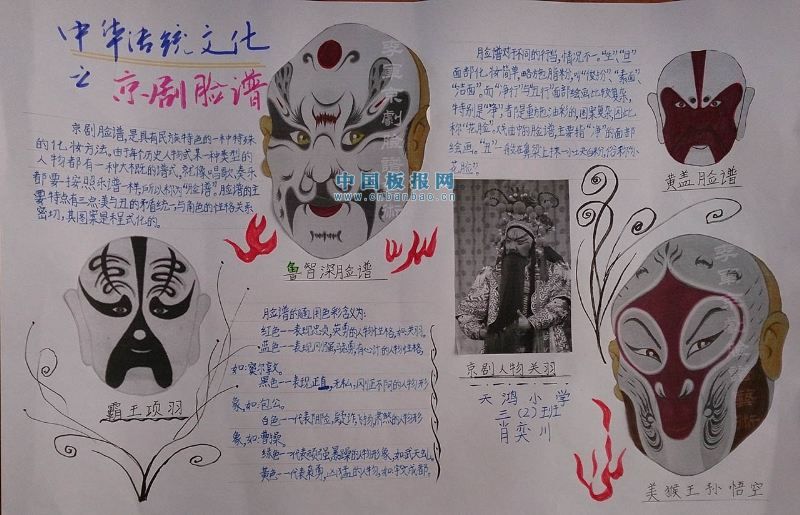 中华传统文化
之 京剧脸谱
京剧脸谱,是具有民族特色的一种特殊
的化妆方法。由于每个历史人物或某一种类型的
人物都有一种大概的谱式,就像唱歌、奏乐
都要按照乐谱一样,所以称为"脸谱"。脸谱的主
要特点有三点:美与丑的矛盾统一;与角色的性格关系
密切,其图案是程式化的。
霸王项羽
鲁智深脸谱
中国板报网
www.cnbanbao.cn
脸谱的
用色彩含义为:
红色一一表现忠贞,英勇的人物性格,如:关羽。
蓝色一一表现刚强,骁勇,有心计的人物性格,
如:窦尔敦。
黑色一一表现正直,无私,刚正不阿的人物形
象,如:包公。
白色一一代表阴险,疑诈,飞扬,肃煞的人物形
象,如:曹操。
绿色一一代表顽强,暴躁的人物形象,如:武天虬。
黄色一一代表枭勇,凶猛的人物,如:宇文成都。
脸谱对于不同的行当,情况不一。"生","旦"
面部化妆简单,略施脂粉,叫"俊扮"、"素面"、
"洁面"。而"净行"与"丑行"面部绘画比较复杂,
特别是"净",都是重施油彩的,图案复杂,因此
称"花脸"。戏曲中的脸谱,主要指"净"的面部
绘画。"丑"
一般在鼻梁上抹一小块白粉,俗称"小
花脸"。
黄盖脸谱
京剧人物关羽
天鸿小学
三(2)班
肖奕川
美猴王孙悟空
李军京剧脸谱艺术